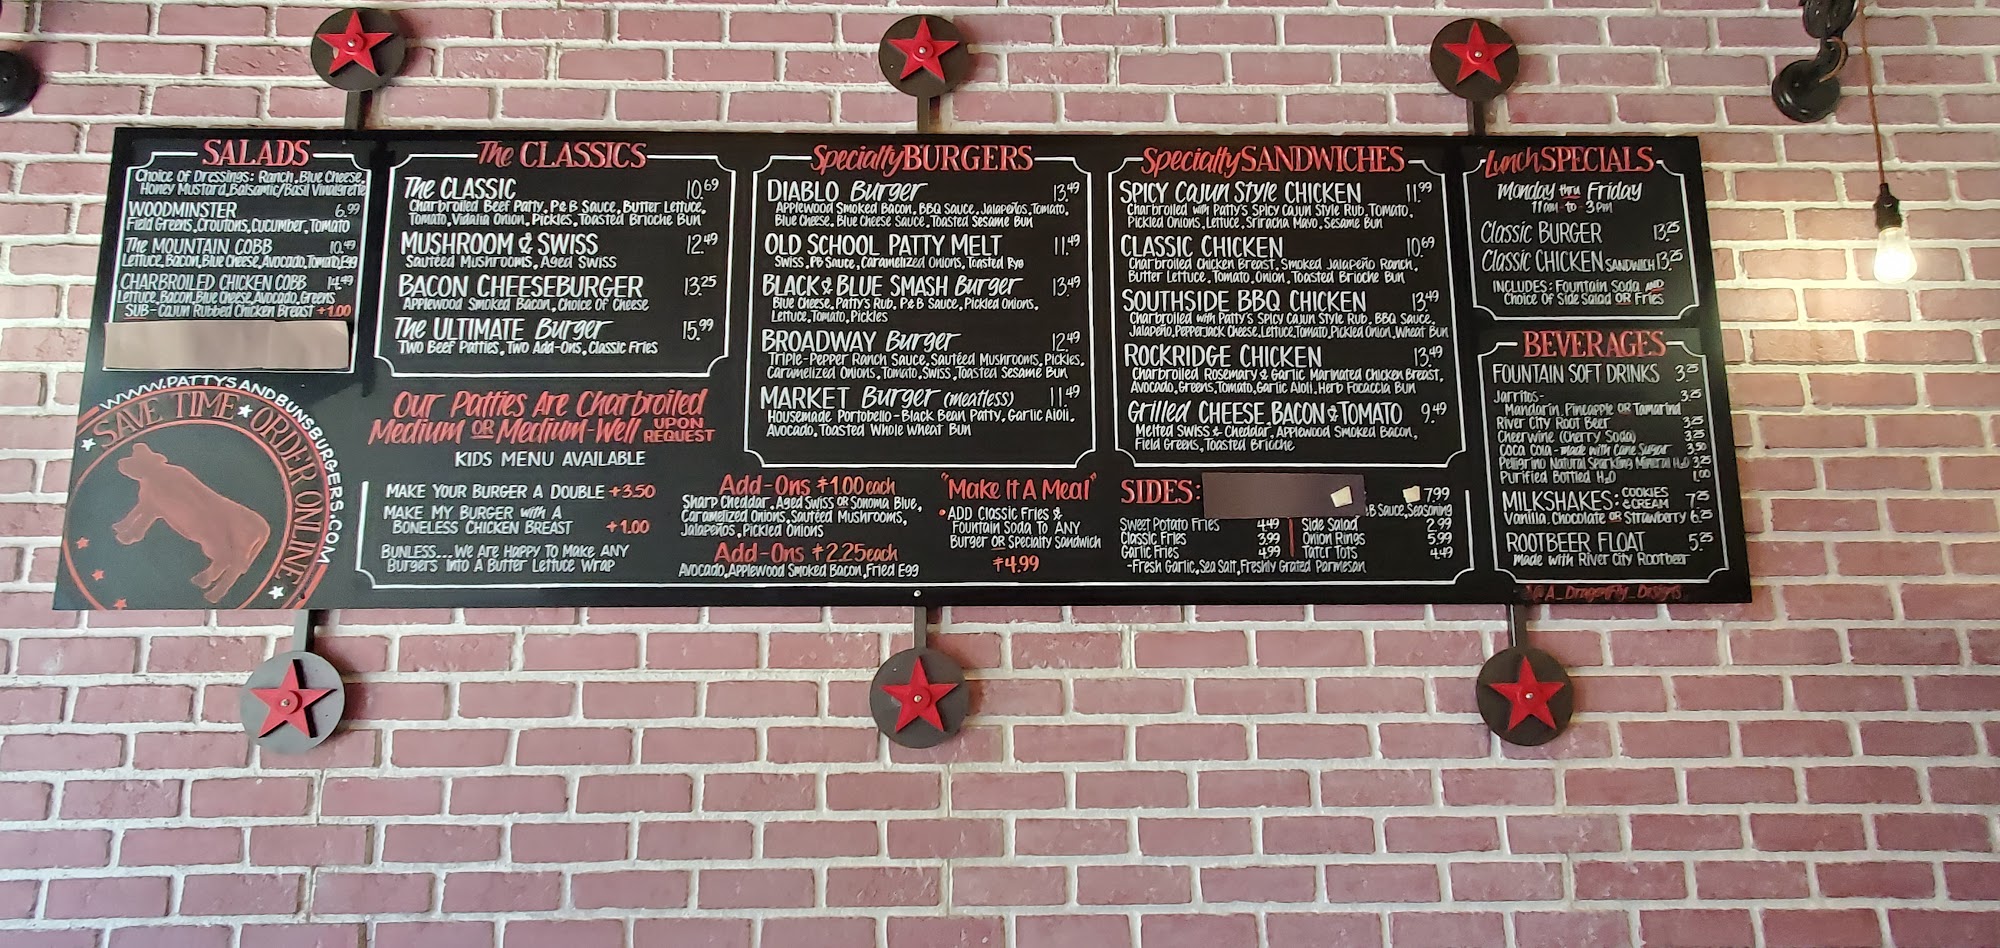 SALADS
Choice Of Dressings: Ranch, Blue Cheese,
Honey Mustard, Balsamic/Basil Vinaigrette
WOODMINSTER 6.99
Field Greens, Croutons, Cucumber, Tomato
The MOUNTAIN COBB 10.49
Lettuce, Bacon, Blue Cheese, Avocado, Tomato, Egg
CHARBROILED CHICKEN COBB 14.49
Lettuce, Bacon, Blue Cheese, Avocado, Greens
SUB-Cajun Rubbed Chicken Breast +1.00
WWW.PATTYSANDBUNSBURGERS.COM
SAVE TIME ★ ORDER ONLINE
The CLASSICS
The CLASSIC 10.69
Charbroiled Beef Patty, P&B Sauce, Butter Lettuce,
Tomato, Vidalia Onion, Pickles, Toasted Brioche Bun
MUSHROOM & SWISS 12.49
Sautéed Mushrooms, Aged Swiss
BACON CHEESEBURGER 13.25
Applewood Smoked Bacon, Choice Of Cheese
The ULTIMATE Burger 15.99
Two Beef Patties, Two Add-Ons, Classic Fries
Our Patties Are Charbroiled
Medium OR Medium-Well UPON REQUEST
KIDS MENU AVAILABLE
MAKE YOUR BURGER A DOUBLE +3.50
MAKE MY BURGER with A
BONELESS CHICKEN BREAST +1.00
BUNLESS...We Are Happy To Make Any
Burgers Into A Butter Lettuce Wrap
Specialty BURGERS
DIABLO Burger 13.49
Applewood Smoked Bacon, BBQ Sauce, Jalapeños, Tomato,
Blue Cheese, Blue Cheese Sauce, Toasted Sesame Bun
OLD SCHOOL PATTY MELT 11.49
Swiss, PB Sauce, Caramelized Onions, Toasted Rye
BLACK & BLUE SMASH Burger 13.49
Blue Cheese, Patty's Rub, P&B Sauce, Pickled Onions,
Lettuce, Tomato, Pickles
BROADWAY Burger 12.49
Triple-Pepper Ranch Sauce, Sautéed Mushrooms, Pickles,
Caramelized Onions, Tomato, Swiss, Toasted Sesame Bun
MARKET Burger (meatless) 11.49
Housemade Portobello-Black Bean Patty, Garlic Aioli,
Avocado, Toasted Whole Wheat Bun
Add-Ons $1.00 each
Sharp Cheddar, Aged Swiss OR Sonoma Blue,
Caramelized Onions, Sautéed Mushrooms,
Jalapeños, Pickled Onions
Add-Ons $2.25 each
Avocado, Applewood Smoked Bacon, Fried Egg
"Make It A Meal"
• ADD Classic Fries &
Fountain Soda To ANY
Burger OR Specialty Sandwich
$4.99
Specialty SANDWICHES
SPICY Cajun Style CHICKEN 11.99
Charbroiled with Patty's Spicy Cajun Style Rub, Tomato,
Pickled Onions, Lettuce, Sriracha Mayo, Sesame Bun
CLASSIC CHICKEN 10.69
Charbroiled Chicken Breast, Smoked Jalapeño Ranch,
Butter Lettuce, Tomato, Onion, Toasted Brioche Bun
SOUTHSIDE BBQ CHICKEN 13.49
Charbroiled with Patty's Spicy Cajun Style Rub, BBQ Sauce,
Jalapeño, Pepperjack Cheese, Lettuce, Tomato, Pickled Onion, Wheat Bun
ROCKRIDGE CHICKEN 13.49
Charbroiled Rosemary & Garlic Marinated Chicken Breast,
Avocado, Greens, Tomato, Garlic Aioli, Herb Focaccia Bun
Grilled CHEESE, BACON & TOMATO 9.49
Melted Swiss & Cheddar, Applewood Smoked Bacon,
Field Greens, Toasted Brioche
SIDES: 7.99
B Sauce, Seasoning
Sweet Potato Fries 4.49
Classic Fries 3.99
Garlic Fries 4.99
-Fresh Garlic, Sea Salt, Freshly Grated Parmesan
Side Salad 2.99
Onion Rings 5.99
Tater Tots 4.49
Lunch SPECIALS
Monday thru Friday
11am to 3pm
Classic BURGER 13.25
Classic CHICKEN SANDWICH 13.25
INCLUDES: Fountain Soda AND
Choice Of Side Salad OR Fries
BEVERAGES
FOUNTAIN SOFT DRINKS 3.25
Jarritos- 3.25
Mandarin, Pineapple OR Tamarind
River City Root Beer 3.25
Cheerwine (Cherry Soda) 3.25
Coca Cola-made with Cane Sugar 3.50
Pelligrino Natural Sparkling Mineral H2O 3.25
Purified Bottled H2O 1.00
MILKSHAKES: COOKIES & CREAM 7.25
Vanilla, Chocolate OR Strawberry 6.25
ROOTBEER FLOAT 5.25
made with River City Rootbeer
A_Dragonfly_Designs